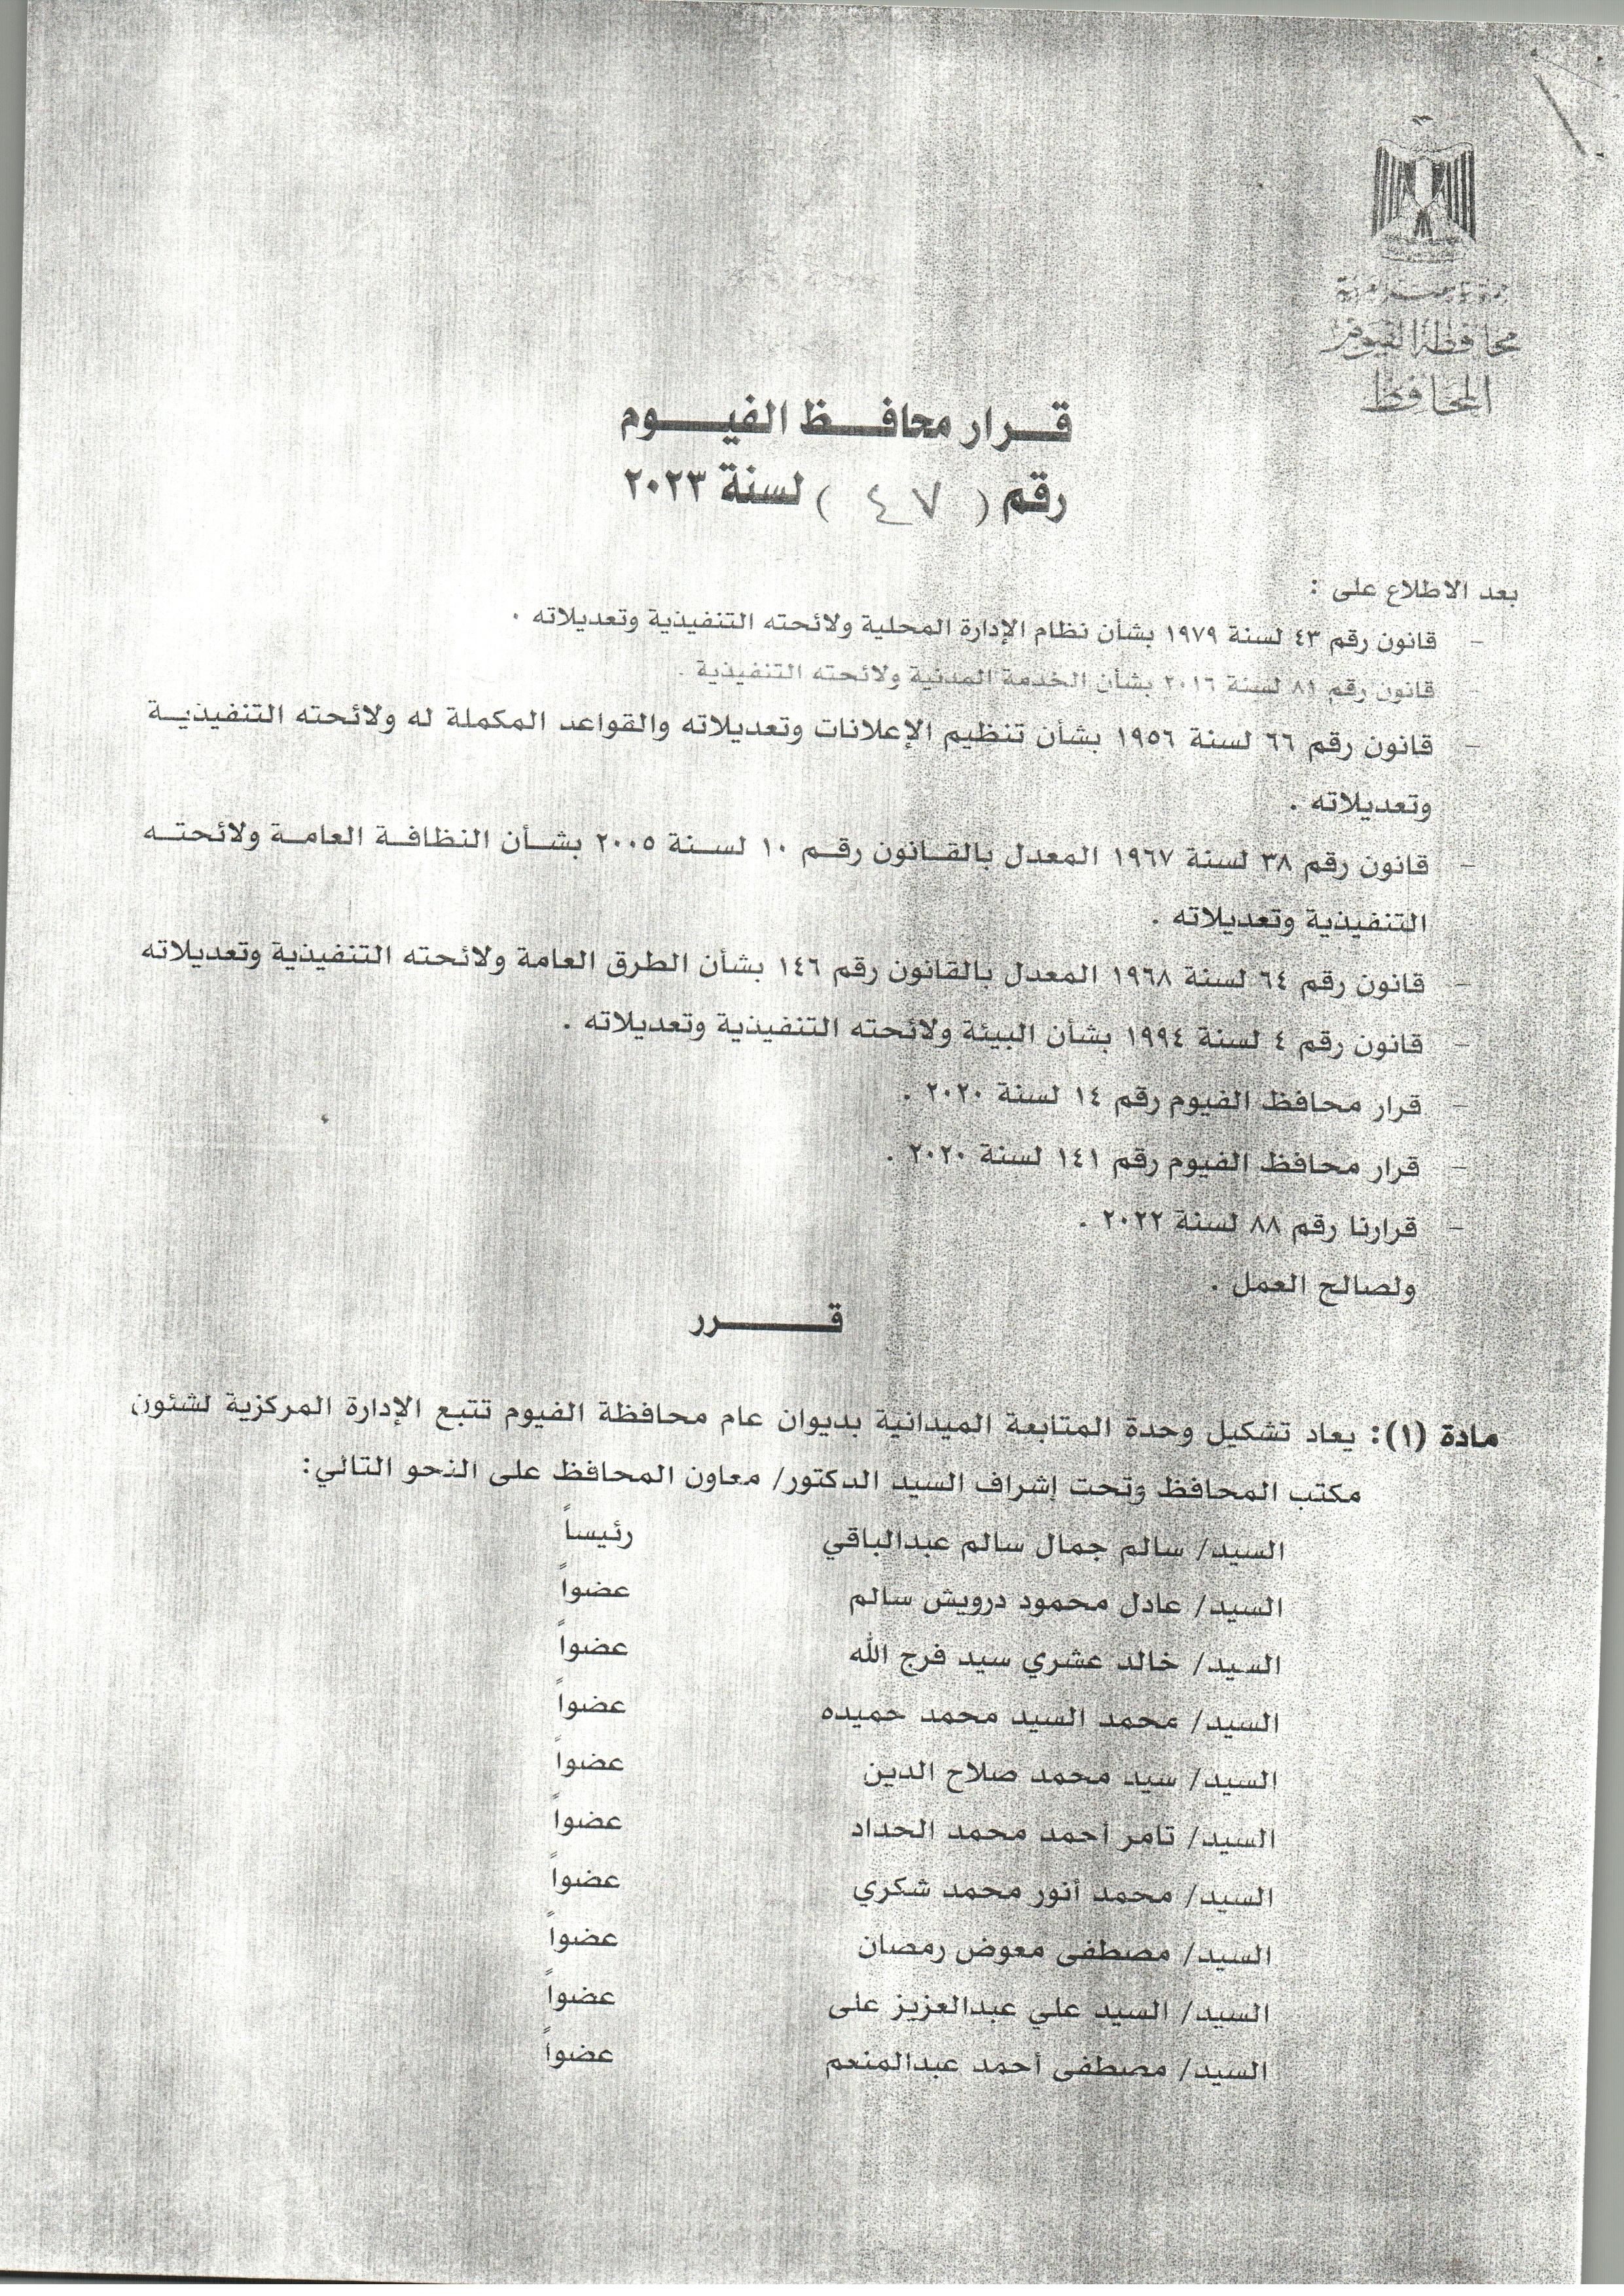 جمهورية مصر العربية
محافظة الفيوم
المحافظ
قـــرار محافـــظ الفيـــوم
رقم ( ٤٧ ) لسنة ٢٠٢٣
بعد الاطلاع على :
- قانون رقم ٤٣ لسنة ١٩٧٩ بشأن نظام الإدارة المحلية ولائحته التنفيذية وتعديلاته .
- قانون رقم ٨١ لسنة ٢٠١٦ بشأن الخدمة المدنية ولائحته التنفيذية .
- قانون رقم ٦٦ لسنة ١٩٥٦ بشأن تنظيم الإعلانات وتعديلاته والقواعد المكملة له ولائحته التنفيذيــة
وتعديلاته .
- قانون رقم ٣٨ لسنة ١٩٦٧ المعدل بالقــانون رقــم ١٠ لســنة ٢٠٠٥ بشــأن النظافــة العامــة ولائحتــه
التنفيذية وتعديلاته .
- قانون رقم ٦٤ لسنة ١٩٦٨ المعدل بالقانون رقم ١٤٦ بشأن الطرق العامة ولائحته التنفيذية وتعديلاته
- قانون رقم ٤ لسنة ١٩٩٤ بشأن البيئة ولائحته التنفيذية وتعديلاته .
- قرار محافظ الفيوم رقم ١٤ لسنة ٢٠٢٠ .
- قرار محافظ الفيوم رقم ١٤١ لسنة ٢٠٢٠ .
- قرارنا رقم ٨٨ لسنة ٢٠٢٢ .
ولصالح العمل .
قـــــــرر
مادة (١): يعاد تشكيل وحدة المتابعة الميدانية بديوان عام محافظة الفيوم تتبع الإدارة المركزية لشئون
مكتب المحافظ وتحت إشراف السيد الدكتور/ معاون المحافظ على النحو التالي:
السيد/ سالم جمال سالم عبدالباقي رئيساً
السيد/ عادل محمود درويش سالم عضواً
السيد/ خالد عشري سيد فرج الله عضواً
السيد/ محمد السيد محمد حميده عضواً
السيد/ سيد محمد صلاح الدين عضواً
السيد/ تامر أحمد محمد الحداد عضواً
السيد/ محمد أنور محمد شكري عضواً
السيد/ مصطفى معوض رمضان عضواً
السيد/ السيد علي عبدالعزيز على عضواً
السيد/ مصطفى أحمد عبدالمنعم عضواً